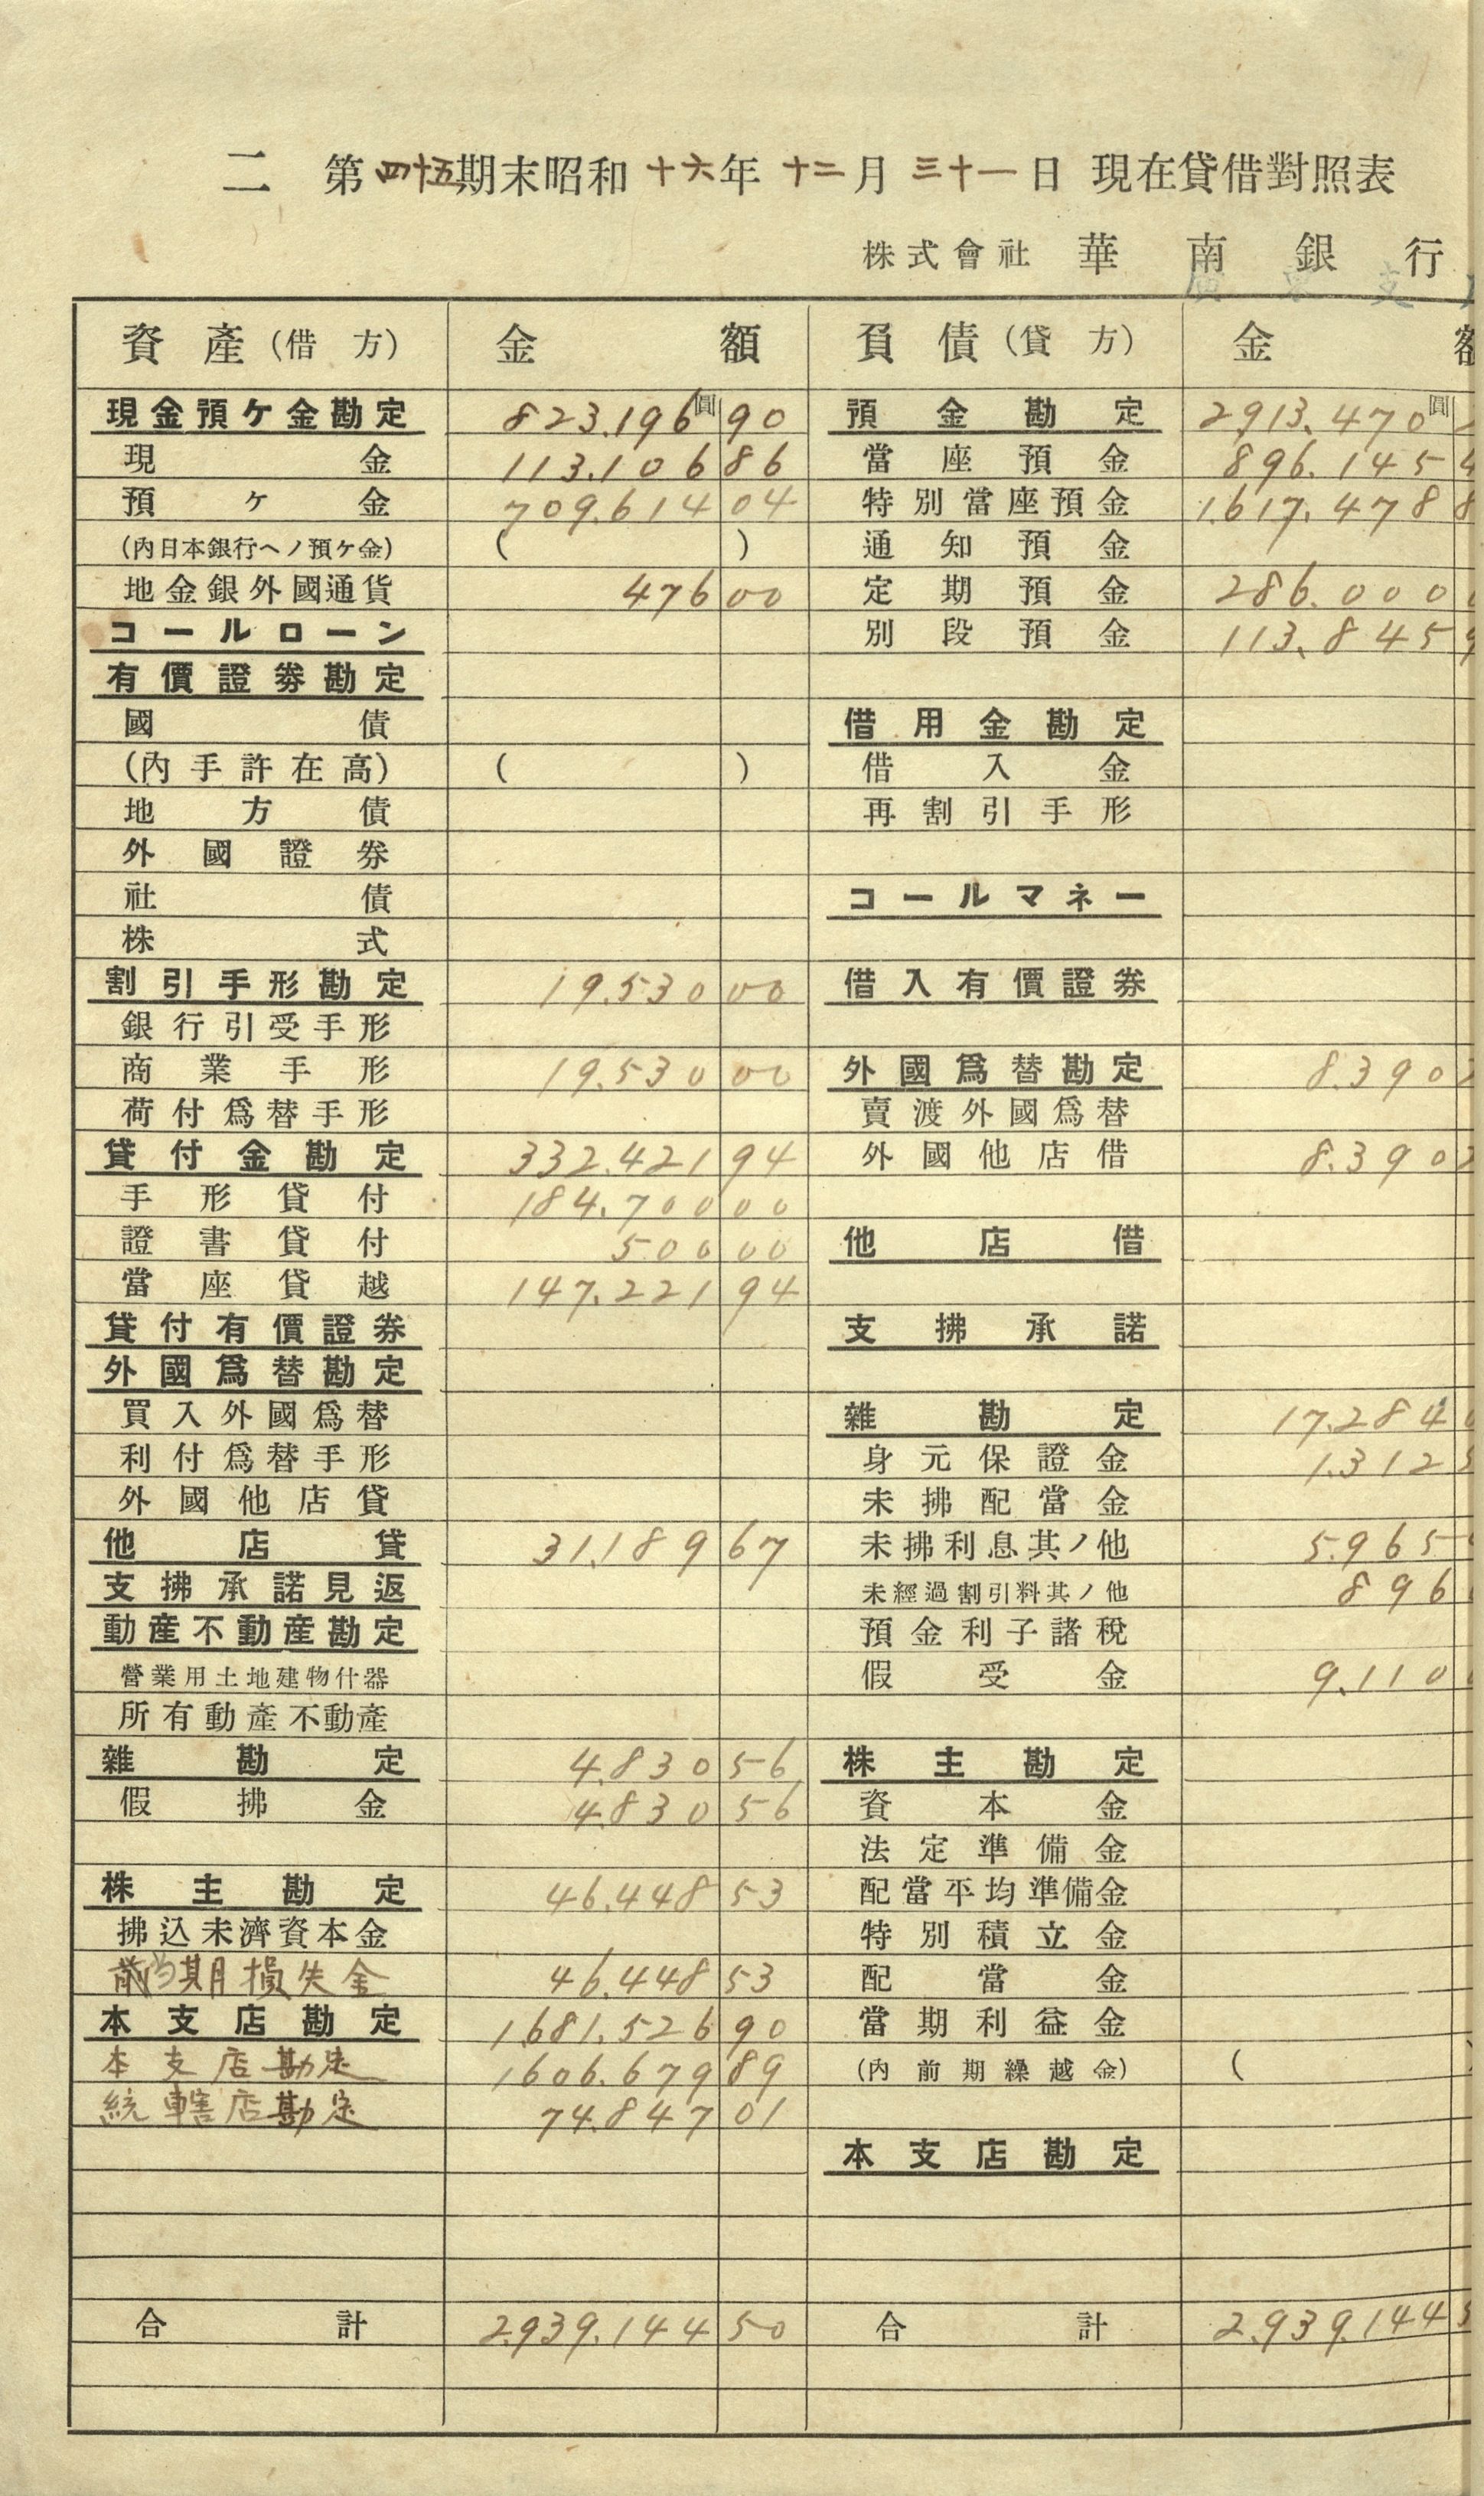 二 第四十五期末昭和十六年十二月三十一日 現在貸借對照表
株式會社 華南銀行
資產(借方) 金額 負債(貸方) 金
現金預ケ金勘定 823.196圓90 預金勘定 2.913.470圓
現金 113.106 86 當座預金 896.145
預ケ金 709.614 04 特別當座預金 1.617.478
(內日本銀行ヘノ預ケ金) ( ) 通知預金
地金銀外國通貨 476 00 定期預金 286.000
コールローン 別段預金 113.845
有價證券勘定
國債 借用金勘定
(內手許在高) ( ) 借入金
地方債 再割引手形
外國證券
社債 コールマネー
株式
割引手形勘定 19.530 00 借入有價證券
銀行引受手形
商業手形 19.530 00 外國爲替勘定 8.390
荷付爲替手形 賣渡外國爲替
貸付金勘定 332.421 94 外國他店借 8.390
手形貸付 184.700 00
證書貸付 500 00 他店借
當座貸越 147.221 94
貸付有價證券 支拂承諾
外國爲替勘定
買入外國爲替 雜勘定 17.284
利付爲替手形 身元保證金 1.312
外國他店貸 未拂配當金
他店貸 31.189 67 未拂利息其ノ他 5.965
支拂承諾見返 未經過割引料其ノ他 896
動產不動產勘定 預金利子諸稅
營業用土地建物什器 假受金 9.110
所有動產不動產
雜勘定 4.830 56 株主勘定
假拂金 4.830 56 資本金
法定準備金
株主勘定 46.448 53 配當平均準備金
拂込未濟資本金 特別積立金
前当期損失金 46.448 53 配當金
本支店勘定 1.681.526 90 當期利益金
本支店勘定 1.606.679 89 (內前期繰越金) (
統轄店勘定 74.847 01
本支店勘定
合計 2.939.144 50 合計 2.939.144